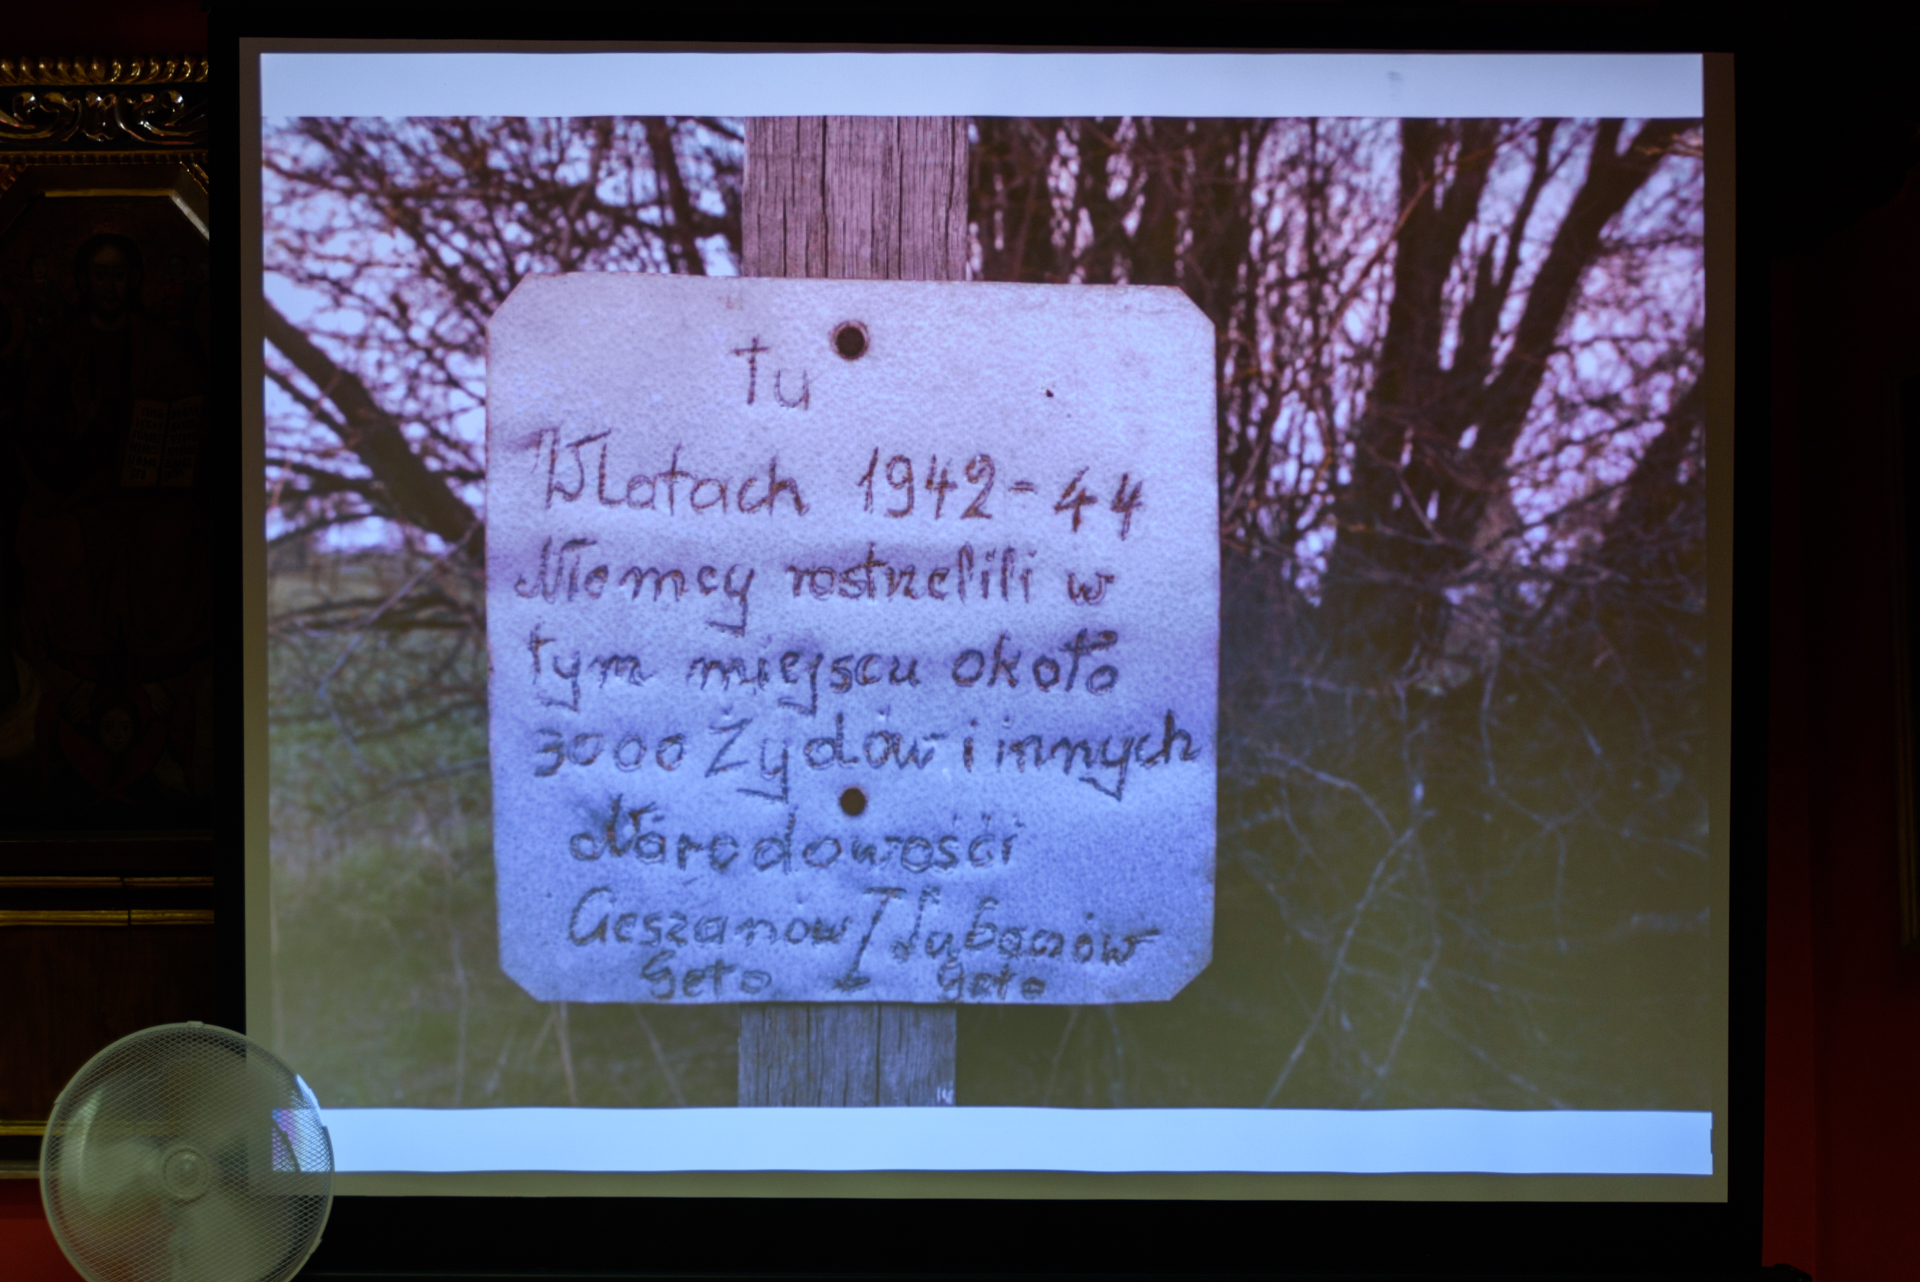 Tu
W Latach 1942-44
Niemcy rostrzelili w
tym miejscu około
3000 Żydów i innych
Narodowości
Cieszanów / Lubaczów
Geto - geto